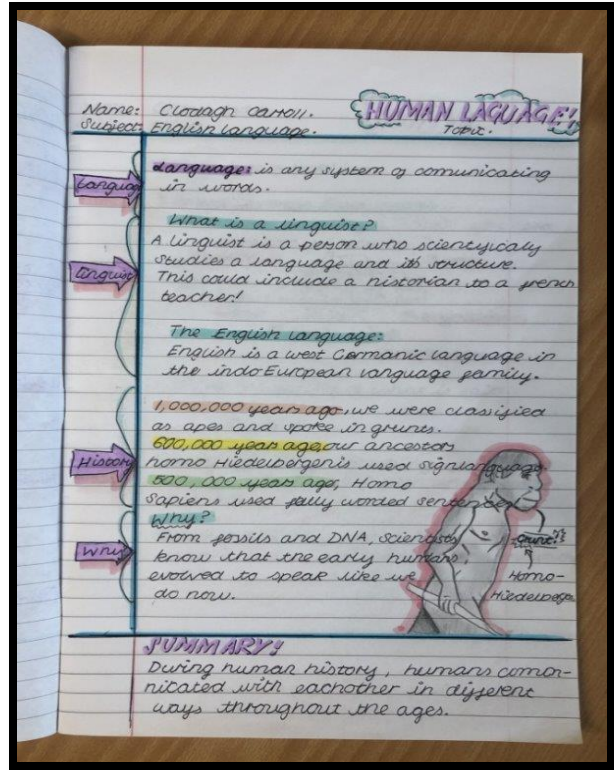 Name: Clodagh Carroll.
HUMAN LAGUAGE!
Subject: English Language.
Topic.
Language
Language: is any system of comunicating
in words.
What is a linguist?
A linguist is a person who scientificaly
Linguist
studies a language and its structure.
This could include a historian to a french
teacher!
The English language:
English is a west Germanic language in
the indo European language family.
1,000,000 years ago, we were classified
as apes and spoke in grunts.
600,000 years age, our ancestors
History
homo Hiedelbergenis used signlanguage
500,000 years ago, Homo
Sapiens used fully worded sentences
Why?
From fossils and DNA, scientists
Why
know that the early humans,
evolved to speak like we
do now.
Grunt!
Homo-
Hiedelberge
SUMMARY!
During human history, humans comon-
nitated with eachother in different
ways throughout the ages.